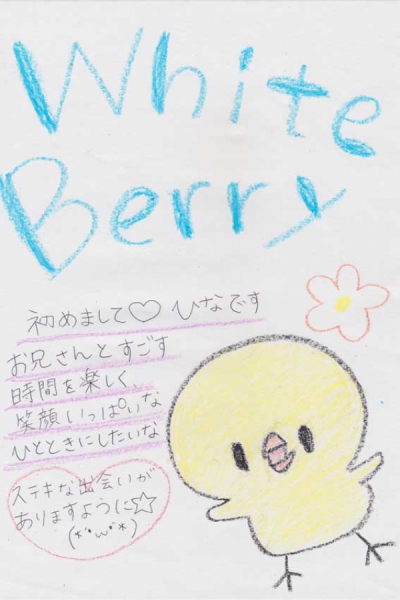 White
Berry
初めまして♡ ひなです
お兄さんとすごす
時間を楽しく、
笑顔いっぱいな
ひとときにしたいな
ステキな出会いが
ありますように☆
(*´ω`*)